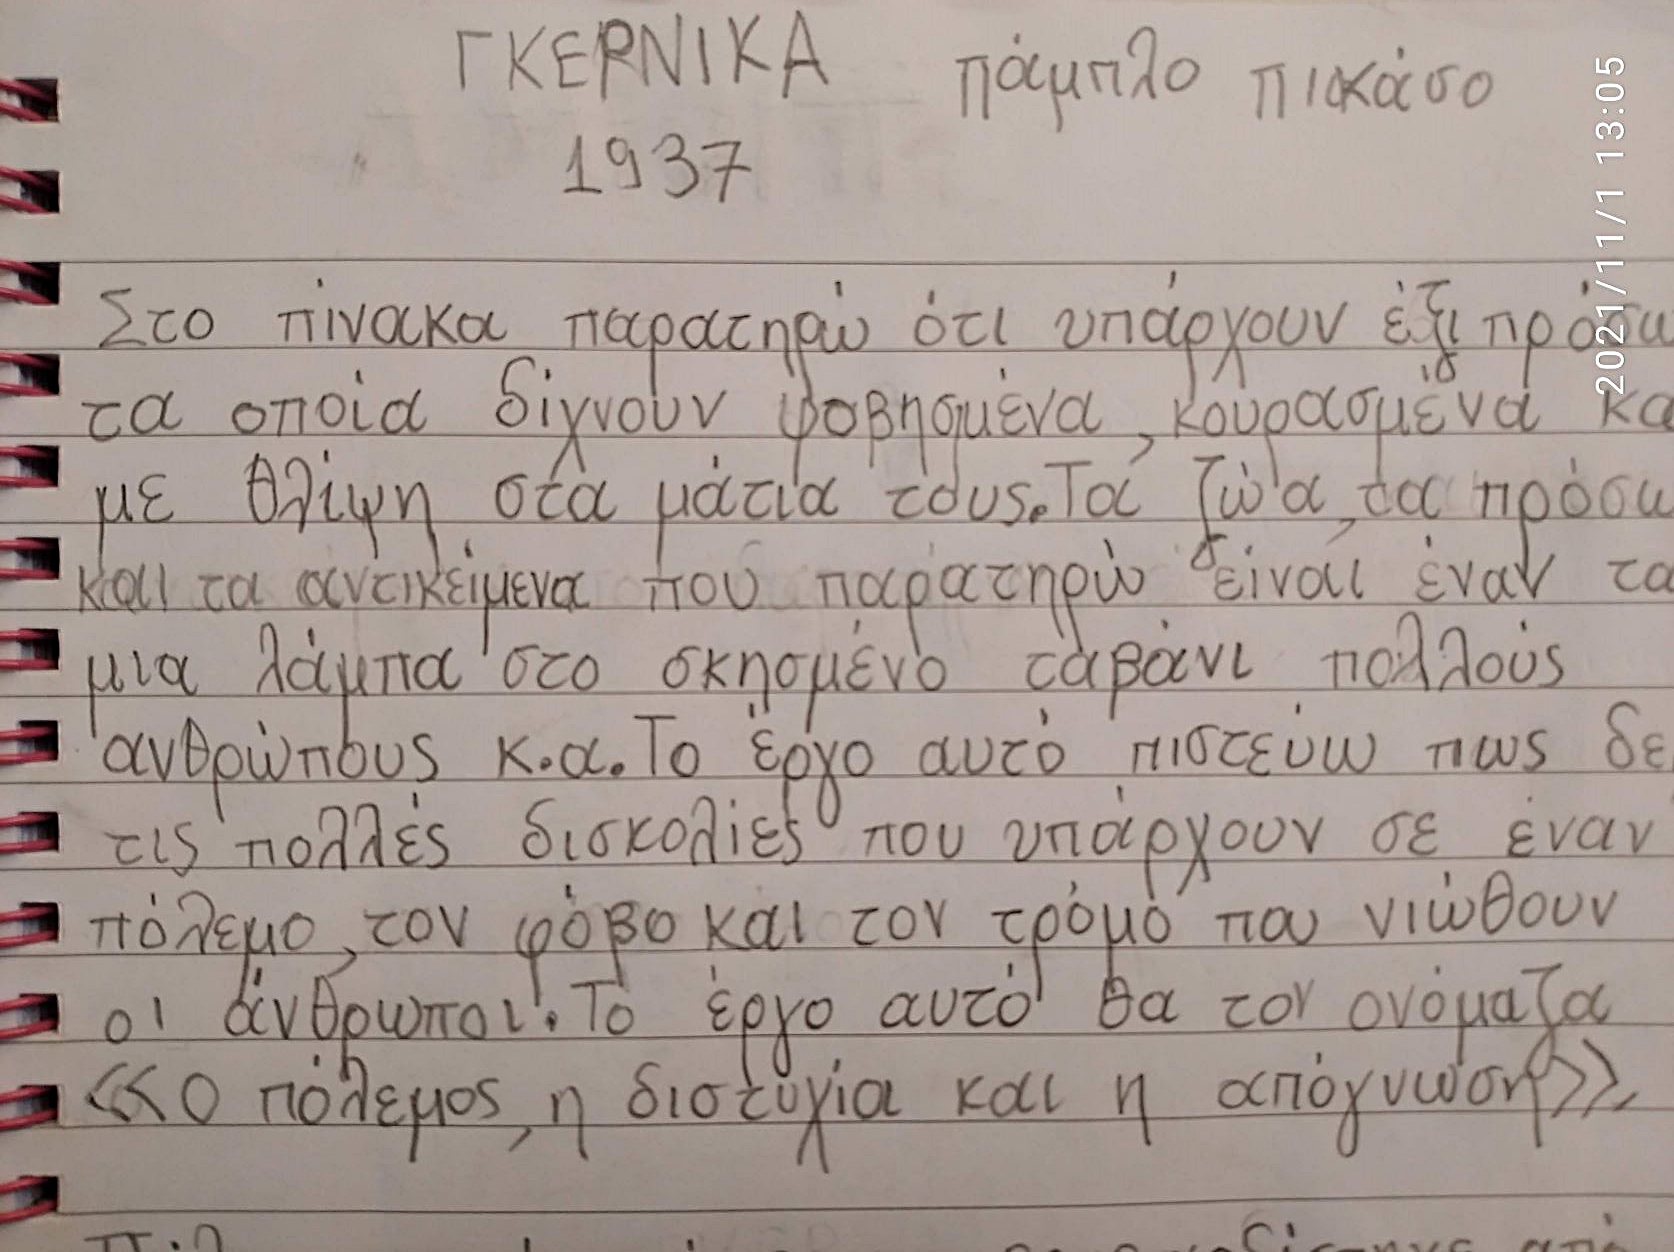 ΓΚΕΡΝΙΚΑ πάμπλο πικάσο
1937
2021/11/1 13:05
Στο πίνακα παρατηρώ ότι υπάρχουν έξι
τα οποία δίχνουν φοβησμένα, κουρασμένα κα
με θλίψη στα μάτια τους. Τα ζώα, τα πρόσω
και τα αντικείμενα που παρατηρώ είναι έναν τα
μια λάμπα στο σκησμένο ταβάνι πολλούς
ανθρώπους κ.α. Το έργο αυτό πιστεύω πως δε
τις πολλές δισκολίες που υπάρχουν σε έναν
πόλεμο, τον φόβο και τον τρόμο που νιώθουν
οι άνθρωποι. Το έργο αυτό θα τον ονόμαζα
<<Ο πόλεμος, η διστυχία και η απόγνωση>>.